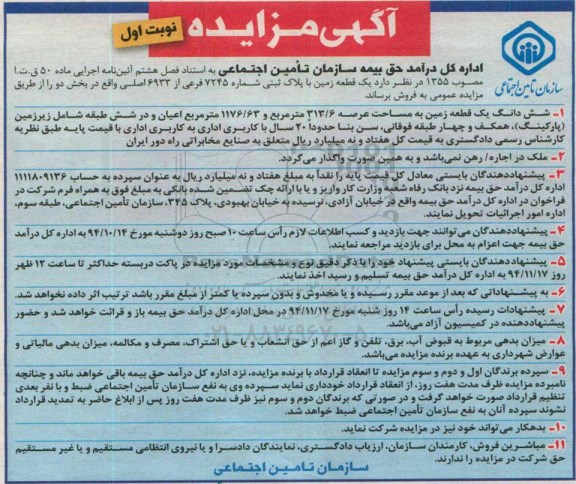 آگهی مزایده
نوبت اول
سازمان تأمین اجتماعی
اداره کل درآمد حق بیمه سازمان تأمین اجتماعی به استناد فصل هشتم آئین‌نامه اجرایی ماده ۵۰ ق.ت.ا
مصوب ۱۳۵۵ در نظر دارد یک قطعه زمین با پلاک ثبتی شماره ۷۲۴۵ فرعی از ۶۹۳۳ اصلی واقع در بخش دو را از طریق
مزایده عمومی به فروش برساند.
۱- شش دانگ یک قطعه زمین به مساحت عرصه ۳۱۳/۶ مترمربع و ۱۱۷۶/۶۳ مترمربع اعیان و در شش طبقه شامل زیرزمین
(پارکینگ)، همکف و چهار طبقه فوقانی، سن بنا حدوداً ۲۰ سال با کاربری اداری به کاربری اداری با قیمت پایه طبق نظریه
کارشناس رسمی دادگستری به قیمت کل هفتاد و نه میلیارد ریال متعلق به صنایع مخابراتی راه دور ایران
۲- ملک در اجاره/ رهن نمی‌باشد و به همین صورت واگذار می‌گردد.
۳- پیشنهاددهندگان بایستی معادل کل قیمت پایه را نقداً به مبلغ هفتاد و نه میلیارد ریال به عنوان سپرده به حساب ۱۱۱۱۸۰۹۱۳۶
اداره کل درآمد حق بیمه نزد بانک رفاه شعبه وزارت کار واریز و یا با ارائه چک تضمین شده بانکی به مبلغ فوق به همراه فرم شرکت در
فراخوان در اداره کل درآمد حق بیمه واقع در خیابان آزادی، نرسیده به خیابان بهبودی، پلاک ۳۴۵، سازمان تأمین اجتماعی، طبقه سوم،
اداره امور اجرائیات تحویل نمایند.
۴- پیشنهاددهندگان می‌توانند جهت بازدید و کسب اطلاعات لازم رأس ساعت ۱۰ صبح روز دوشنبه مورخ ۹۴/۱۰/۱۴ به اداره کل درآمد
حق بیمه جهت اعزام به محل برای بازدید مراجعه نمایند.
۵- پیشنهاددهندگان بایستی پیشنهاد خود را با ذکر دقیق نوع و مشخصات مورد مزایده در پاکت دربسته حداکثر تا ساعت ۱۲ ظهر
روز ۹۴/۱۱/۱۷ به اداره کل درآمد حق بیمه تسلیم و رسید اخذ نمایند.
۶- به پیشنهاداتی که بعد از موعد مقرر رسیده و یا مخدوش و بدون سپرده یا کمتر از مبلغ مقرر باشد ترتیب اثر داده نخواهد شد.
۷- پیشنهادات رسیده رأس ساعت ۱۴ روز شنبه مورخ ۹۴/۱۱/۱۷ در محل اداره کل درآمد حق بیمه باز و قرائت خواهد شد و حضور
پیشنهاددهنده در کمیسیون آزاد می‌باشد.
۸- میزان بدهی مربوط به قبوض آب، برق، تلفن و گاز اعم از حق انشعاب و یا حق اشتراک، مصرف و مکالمه، میزان بدهی مالیاتی و
عوارض شهرداری به عهده برنده مزایده می‌باشد.
۹- سپرده برندگان اول و دوم و سوم مزایده تا انعقاد قرارداد با برنده مزایده، نزد اداره کل درآمد حق بیمه باقی خواهد ماند و چنانچه
نامبرده مزایده ظرف مدت هفت روز، از انعقاد قرارداد خودداری نماید سپرده وی به نفع سازمان تأمین اجتماعی ضبط و با نفر بعدی
تنظیم قرارداد صورت خواهد گرفت و در صورتی که برندگان دوم و سوم نیز ظرف مدت هفت روز پس از ابلاغ حاضر به تمدید قرارداد
نشوند سپرده آنان به نفع سازمان تأمین اجتماعی ضبط خواهد شد.
۱۰- بدهکار می‌تواند خود نیز در مزایده شرکت نماید.
۱۱- مباشرین فروش، کارمندان سازمان، ارزیاب دادگستری، نمایندگان دادسرا و یا نیروی انتظامی مستقیم و یا غیر مستقیم
حق شرکت در مزایده را ندارند.
سازمان تامین اجتماعی